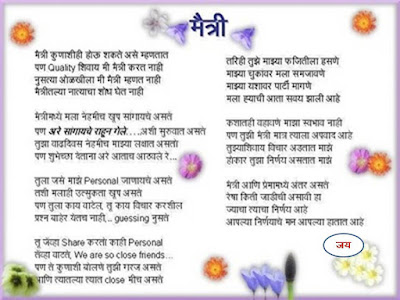 मैत्री
मैत्री कुणाशीही होऊ शकते असे म्हणतात
पण Quality शिवाय मी मैत्री करत नाही
नुसत्या ओळखीला मी मैत्री म्हणत नाही
मैत्रीतल्या नात्याचा शोध घेत नाही
मैत्रीमध्ये मला नेहमीच खुप सांगायचे असतं
पण अरे सांगायचे राहून गेले.....अशी सुरुवात असतं
तुझा वाढदिवस मात्र नेहमीच माझ्या लक्षात असतो!
पण शुभेच्छा देताना अरे आताच आठवले रे...
तुला जसं माझं Personal जाणायचे असतं
तशी मलाही उत्सुकता खुप असते
पण तुला काय वाटेल, तू काय विचार करशील
प्रश्न बाहेर येतच नाही... guessing नुसते
तू जेव्हा Share करतो काही Personal
तेव्हा वाटते, We are so close friends...
पण ते कुणाशी बोलणे तुझी गरज असते
आणि त्यातल्या त्यात close मीच असते
तरिही तुझे माझ्या फजितीला हसणे
माझ्या चुकांवर मला समजावणे
माझ्या यशावर पार्टी मागणे
मला ह्याची आता सवय झाली आहे
कशातही वहावणे माझा स्वभाव नाही
पण तुझी मैत्री मात्र त्याला अपवाद आहे
तुझ्याशिवाय विचार अडतात माझे
होकार तुझा निर्णय असतात माझे
मैत्री आणि प्रेमामध्ये अंतर असतं
रेषा किती जाडीची असावी हा
ज्याचा त्याचा निर्णय आहे
आपल्या निर्णयाचे मन आपल्या हातात आहे
जय